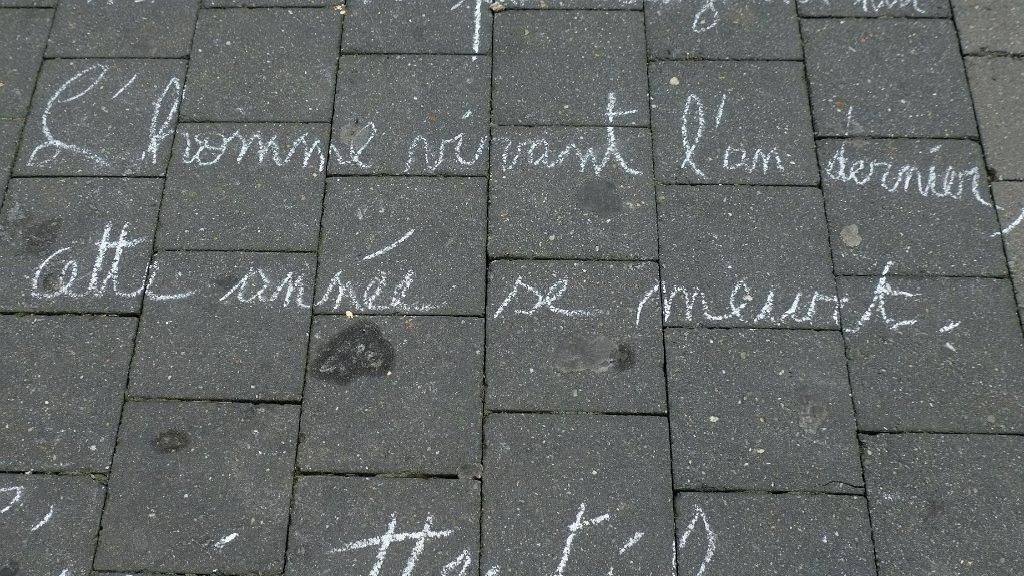 L'homme vivant l'an dernier,
cette année se meurt.